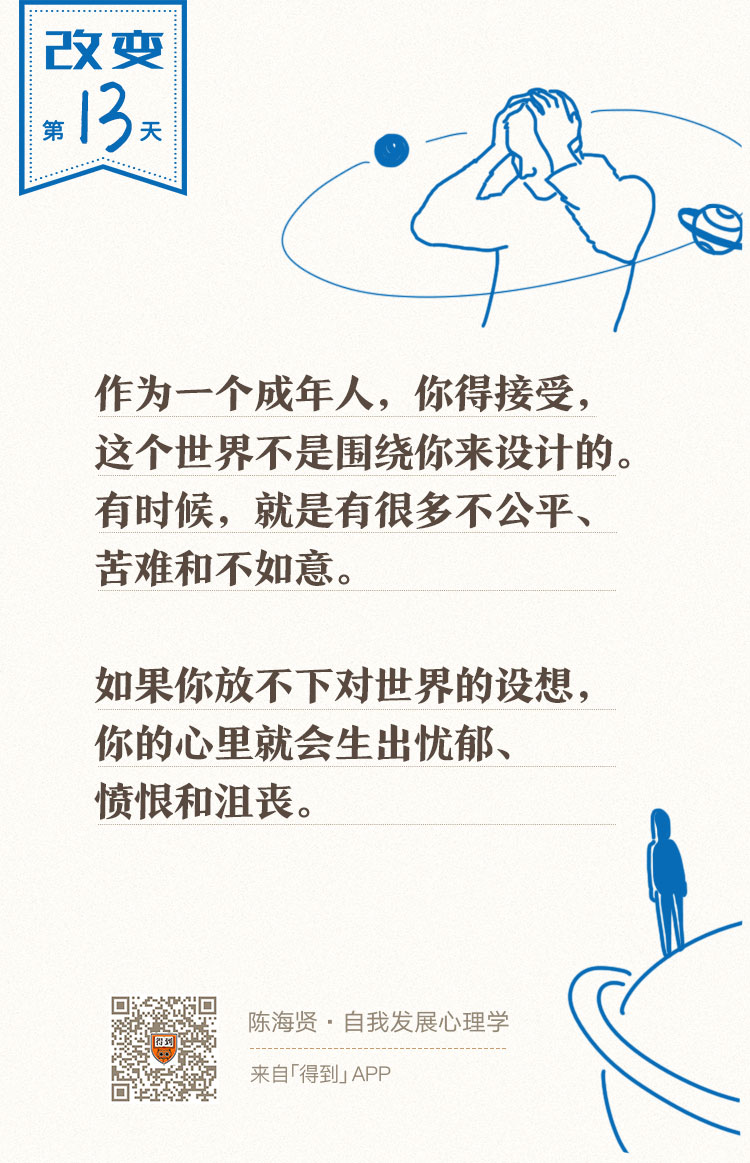 改变
第13天
作为一个成年人，你得接受，
这个世界不是围绕你来设计的。
有时候，就是有很多不公平、
苦难和不如意。
如果你放不下对世界的设想，
你的心里就会生出忧郁、
愤恨和沮丧。
得到
陈海贤·自我发展心理学
来自「得到」APP